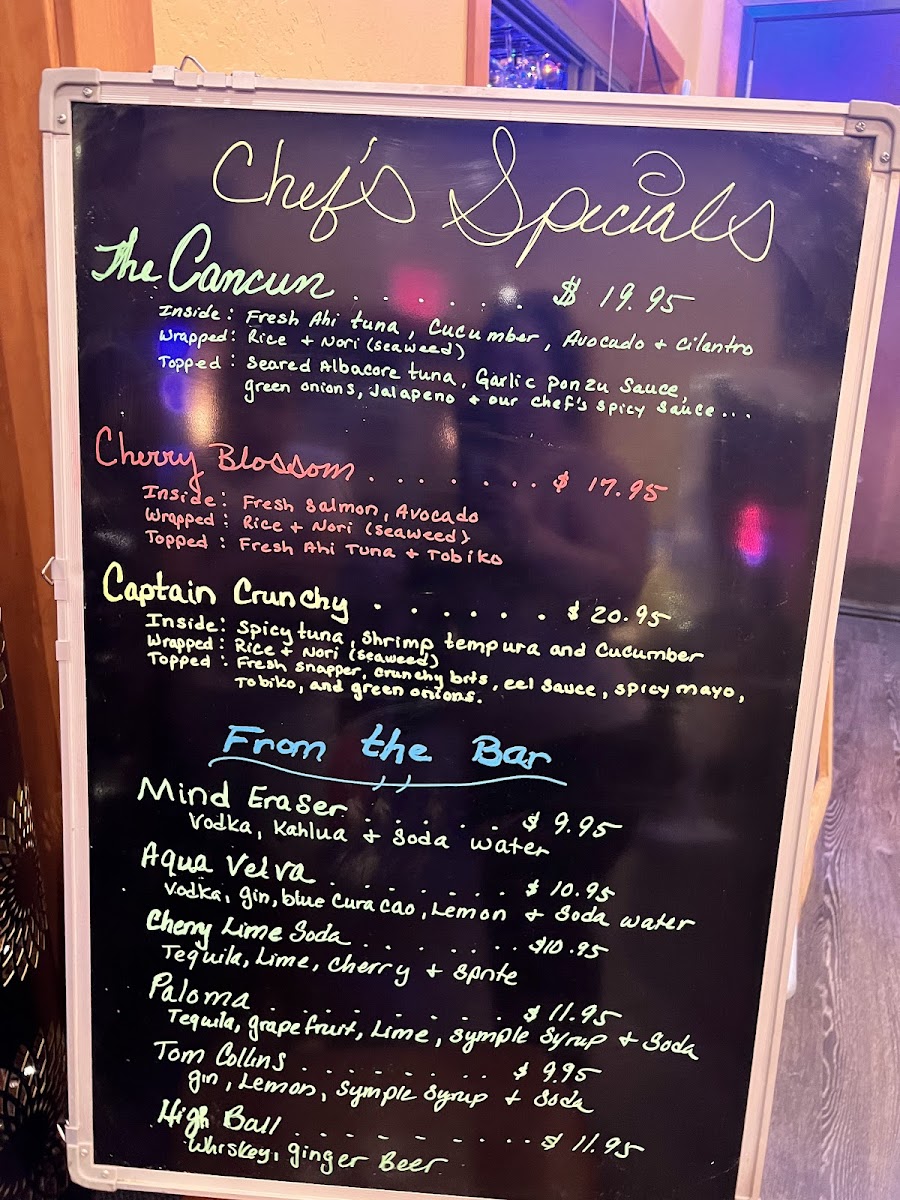 Chef's Specials
The Cancun . . . . . . . $ 19.95
Inside: Fresh Ahi tuna, Cucumber, Avocado + Cilantro
Wrapped: Rice + Nori (seaweed)
Topped: Seared Albacore tuna, Garlic ponzu sauce,
green onions, Jalapeno + our chef's spicy sauce...
Cherry Blossom . . . . . . . . $ 17.95
Inside: Fresh Salmon, Avocado
Wrapped: Rice + Nori (seaweed)
Topped: Fresh Ahi Tuna + Tobiko
Captain Crunchy . . . . . . $ 20.95
Inside: Spicy tuna, Shrimp tempura and Cucumber
Wrapped: Rice + Nori (seaweed)
Topped: Fresh snapper, crunchy bits, eel sauce, spicy mayo,
Tobiko, and green onions.
From the Bar
Mind Eraser . . . . . . $ 9.95
Vodka, Kahlua + Soda water
Aqua Velva . . . . . . . . $ 10.95
Vodka, gin, blue curacao, Lemon + Soda water
Cherry Lime Soda . . . . . . . $10.95
Tequila, Lime, cherry + Sprite
Paloma . . . . . . . . . $ 11.95
Tequila, grapefruit, Lime, symple syrup + Soda
Tom Collins . . . . . . . . $ 9.95
gin, Lemon, symple syrup + Soda
High Ball . . . . . . . . . . $ 11.95
Whiskey, ginger Beer